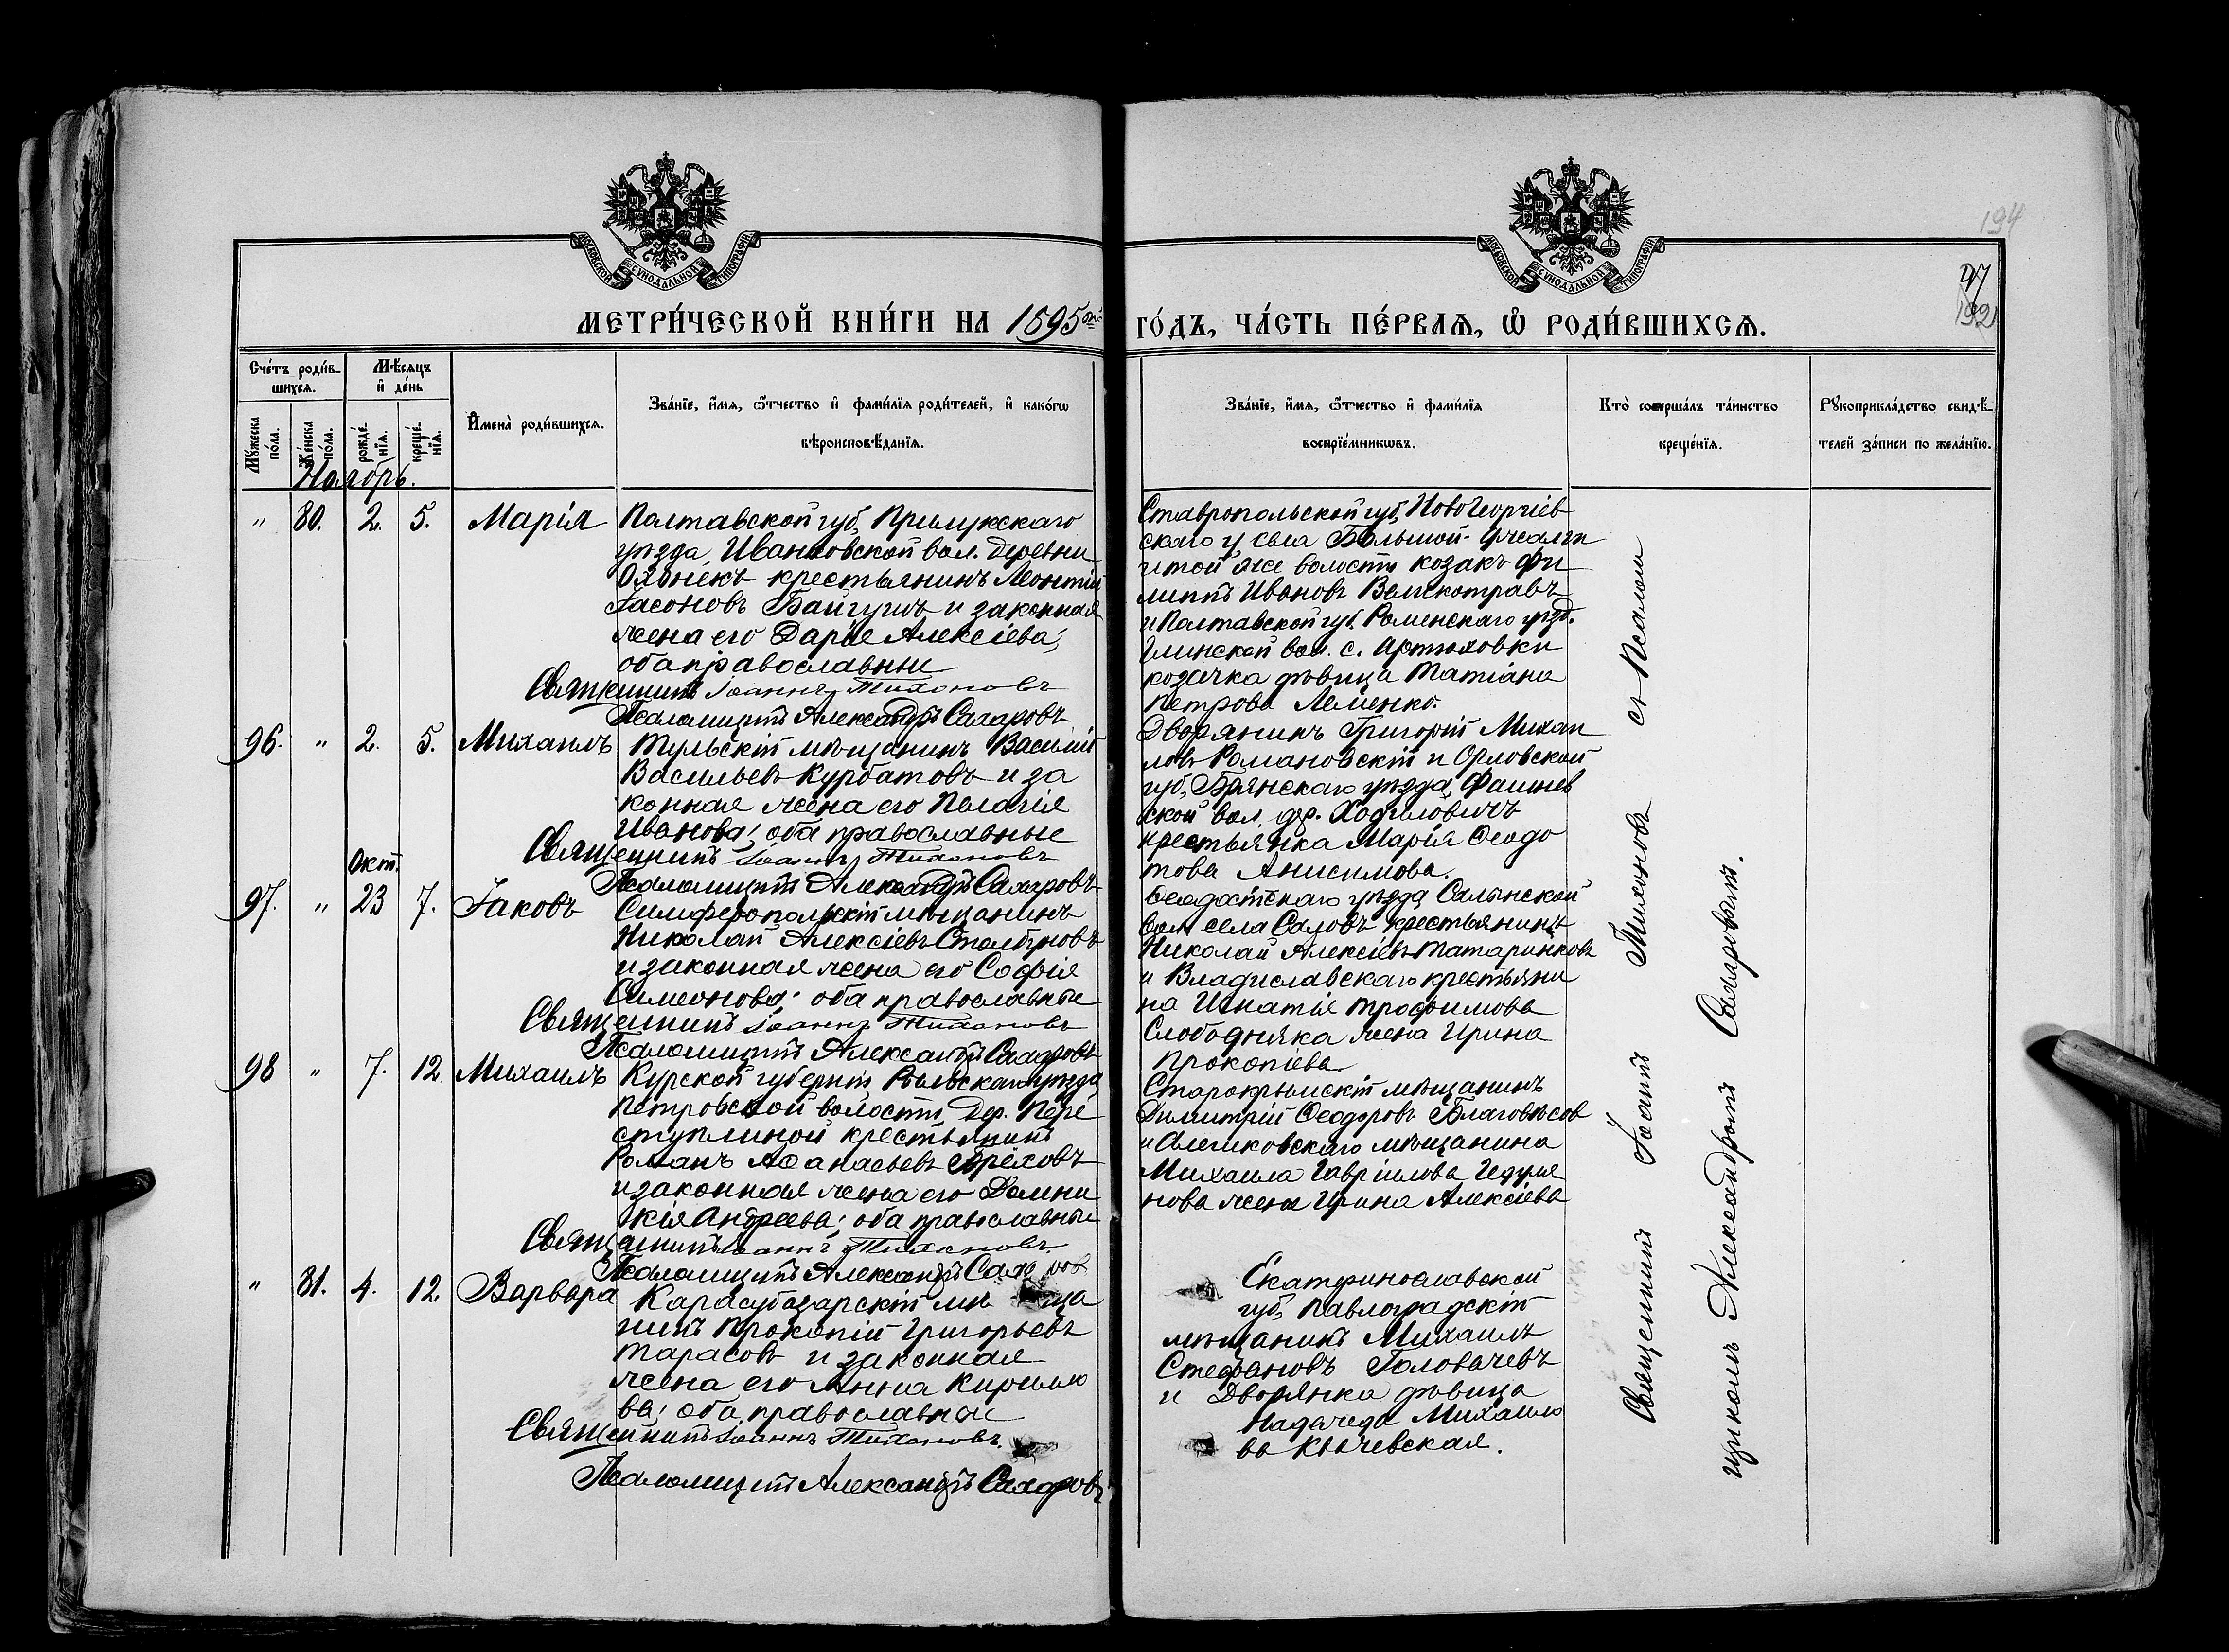 194
47
192
МОСКОВСКОЙ СѴНОДАЛЬНОЙ ТИПОГРАФІИ
МОСКОВСКОЙ СѴНОДАЛЬНОЙ ТИПОГРАФІИ
МЕТРИ́ЧЕСКОЙ КНИ́ГИ НА 1895 ый
ГО́ДЪ, ЧА́СТЬ ПЕ́РВАѦ, Ѡ҆ РОДИ́ВШИХСѦ.
Сче́тъ роди́в-
шихсѧ.
Мѣ́сѧцъ
и҆ де́нь
Мꙋ́жеска
по́ла.
Же́нска
по́ла.
рожде́-
нїѧ.
креще́-
нїѧ.
И҆мена̀ роди́вшихсѧ.
Зва́нїе, и҆́мѧ, ѻ҆́тчество и҆ фами́лїѧ роди́телей, и҆ како́гѡ
вѣроисповѣ́данїѧ.
Зва́нїе, и҆́мѧ, ѻ҆́тчество и҆ фами́лїѧ
воспрїе́мникѡвъ.
Кто̀ соверша́лъ та́инство
креще́нїѧ.
Рꙋкоприкла́дство свидѣ́-
телей за́писи по жела́нїю.
Ноябрь.
" 80. 2. 5. Марія
Полтавской губ, Прилукскаго
уѣзда, Иванковской вол. деревни
крестьянинъ Леонтій
Іасоновъ Байгушъ и законная
жена его Дарья Алексіева;
оба православные
Священникъ Іоаннъ Тихоновъ
Псаломщикъ Александръ Сахаровъ
Ставропольской губ, Новогеоргіев
скаго у села Большой-
и той же волости козакъ Фи
липпъ Ивановъ
и Полтавской губ. Роменскаго уѣзд.
Глинской вол. с. Артюховки
козачка дѣвица Татіана
Петрова
96. " 2. 5. Михаилъ
Тульскій мѣщанинъ Василій
Васильевъ Курбатовъ и за
конная жена его Пелагія
Иванова; оба православные
Священникъ Іоаннъ Тихоновъ
Псаломщикъ Александръ Сахаровъ
Дворянинъ Григорій Михаи
ловъ Романовскій и Орловской
губ, Брянскаго уѣзда,
ской вол. дер. Ходиловичъ
крестьянка Марія Ѳеодо
това Анисимова.
Окт.
97. " 23 7. Іаковъ
Симферопольскій мѣщанинъ
Николай Алексіевъ Столбуновъ
и законная жена его Софія
Симеонова; оба православные
Священникъ Іоаннъ Тихоновъ
Псаломщикъ Александръ Сахаровъ
Ѳеодосійскаго уѣзда Салынской
вол. села Саловъ крестьянинъ
Николай Алексіевъ Татаринковъ
и Владиславскаго крестьяни
на Игнатія Трофимова
Слободняка жена Ирина
Прокопіева.
98 " 7. 12 Михаилъ
Курской губерніи Рыльскаго уѣзда
Петровской волости, дер. Пере
ступлиной крестьянинъ
Романъ Аѳанасьевъ Орѣховъ
и законная жена его Домни
кія Андреева; оба православные
Священникъ Іоаннъ Тихоновъ
Псаломщикъ Александръ
Старокрымскій мѣщанинъ
Димитрій Ѳеодоровъ Благовѣсов
и Алешковскаго мѣщанина
Михаила Гавріилова
нова жена Ирина Алексіева
" 81. 4. 12 Варвара
Карасубазарскій мѣ ща
нинъ Прокопій Григорьевъ
Тарасовъ и законная
жена его Анна Кирилло
ва; оба православные
Священникъ Іоаннъ Тихоновъ.
Псаломщикъ Александръ Сахаровъ
Екатеринославской
губ, Павлоградскій
мѣщанинъ Михаилъ
Стефановъ Головачевъ
и Дворянка дѣвица
Надежда Михаило
ва Ключевская.
Священникъ Іоаннъ Тихоновъ съ Псалом
щикомъ Александромъ Сахаровымъ.